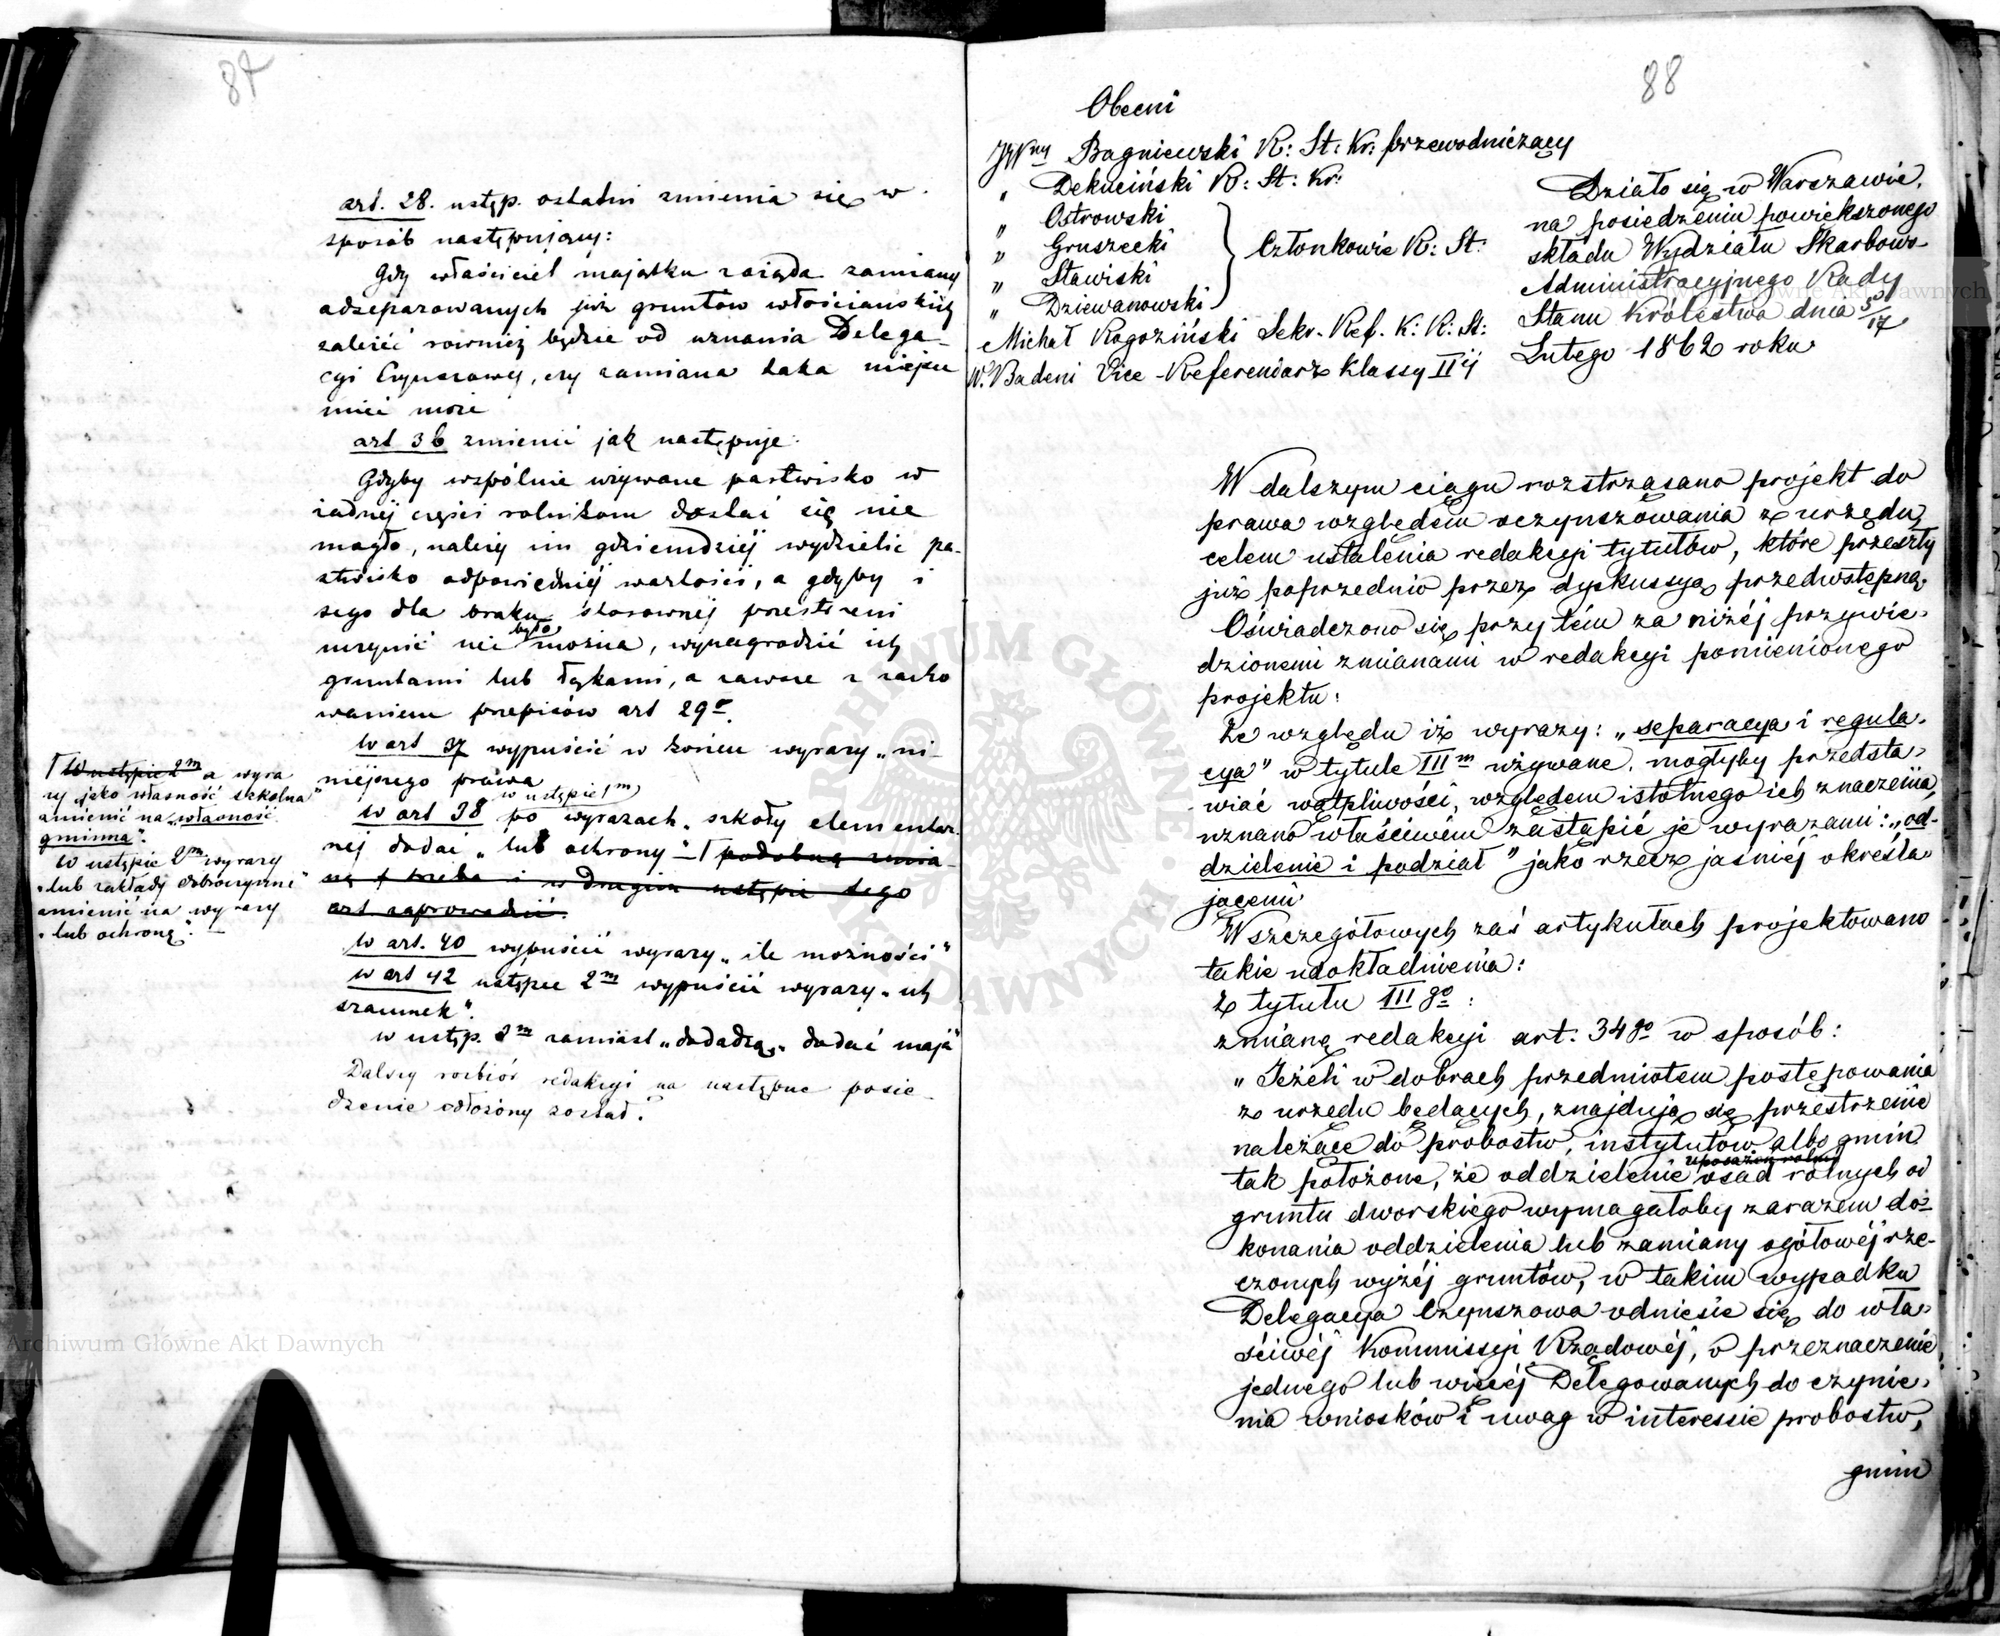 87
art. 28. ustęp. ostatni zmienia się w
sposób następujący:
Gdy właściciel majątku zażąda zamiany
odseparowanych już gruntów włościańskich
zależeć również będzie od uznania Delega-
cyi Czynszowej, czy zamiana taka miejsce
mieć może
art 36 zmienić jak następuje:
Gdyby wspólnie używane pastwisko w
żadnej części rolnikom dostać się nie
mogło, należy im gdzieindziej wydzielić pa-
stwisko odpowiedniej wartości, a gdyby i
tego dla braku stosownej przestrzeni
uczynić nie było można, wynagrodzić ich
gruntami lub łąkami, a zawsze z zacho
waniem przepisów art 29o.
W art 37 wypuścić w końcu wyrazy „ni-
niejszego prawa"
w art 38 w ustępie 1m po wyrazach „szkoły elementar-
nej dodać „lub ochrony" – Ꞁ podobną zmia-
nę trzeba i w drugim ustępie tego
art zaprowadzić.
Ꞁ W ustępie 2m a wyra
zy „jako własność szkolna"
zmienić na „własność
gminna".
W ustępie 2m wyrazy
„lub zakłady dobroczynne"
zmienić na wyrazy
„lub ochronę".
W art. 40 wypuścić wyrazy „ile możności"
w art 42 ustępie 2m wypuścić wyrazy „ich
szacunek".
w ustęp. 2m zamiast „dodadzą„ dodać mają"
Dalszy rozbiór redakcyi na następne posie-
dzenie odłożony został.
88
Obecni
JWny Bagniewski R: St: Kr: przewodniczący
„ Dekuciński R: St: Kr:
„ Ostrowski
„ Gruszecki
„ Sławiski
„ Dziewanowski
Członkowie R: St:
Michał Rogoziński Sekr. Ref. K: R: St:
W. Badeni Vice-Referendarz Klassy IIij
Działo się w Warszawie,
na posiedzeniu powiększonego
składu Wydziału Skarbowo-
Administracyjnego Rady
Stanu Królestwa dnia 5/17
Lutego 1862 roku
W dalszym ciągu rozstrząsano projekt do
prawa względem oczynszowania z urzędu,
celem ustalenia redakcyi tytułów, które przeszły
już poprzednio przez dyskussyą przedwstępną.
Oświadczono się przy tém za niżéj przywie-
dzionemi zmianami w redakcyi pomienionego
projektu:
Ze względu iż wyrazy: „separacya i regula-
cya" w tytule IIIm używane, mogłyby przedsta-
wiać wątpliwości, względem istotnego ich znaczenia,
uznano właściwém zastąpić je wyrazami: „od-
dzielenie i podział" jako rzecz jaśniéj określa-
jącemi
W szczegółowych zaś artykułach projektowano
takie udokładnienia:
Z tytułu III go:
zmianę redakcyi art: 34go w sposób:
„Jeżeli w dobrach przedmiotem postępowania
z urzędu będących, znajdują się przestrzenie
należące do probostw, instytutów albo gmin
tak położone, że oddzielenie osad rolnych od
gruntu dworskiego wymagałoby zarazem do-
konania oddzielenia lub zamiany ogółowéj rze-
czonych wyżéj gruntów, w takim wypadku
Delegacya Czynszowa odniesie się do wła-
ściwéj Kommissyi Rządowéj, o przeznaczenie
jednego lub więcéj Delegowanych do czynie-
nia wniosków i uwag w interessie probostw,
gmin
ARCHIWUM GŁÓWNE AKT DAWNYCH
Archiwum Główne Akt Dawnych